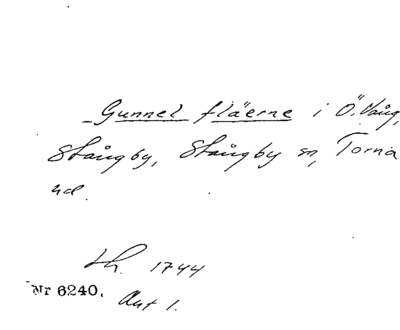 Gunnel fläerne i Ö. Vång,
Stångby, Stångby sn, Torna
hd.
Lh. 1744
Nr 6240. Avt 1.